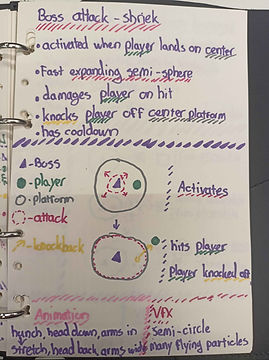 Boss attack - shriek
• activated when player lands on center
• Fast expanding semi-sphere
• damages player on hit
• knocks player off center platform
• has cooldown
▲ - Boss
● - player
○ - platform
- attack
- knockback
Activates
hits player
player knocked off
Animation
hunch, head down, arms in
stretch, head back, arms wide
VFX
semi-circle
many flying particles